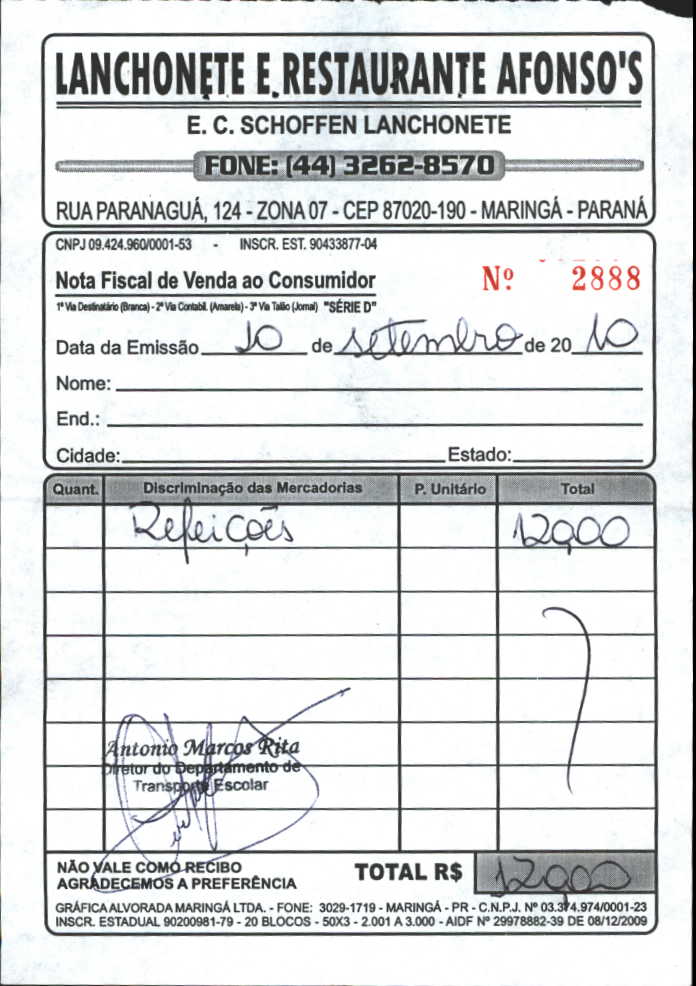 LANCHONETE E RESTAURANTE AFONSO'S
E. C. SCHOFFEN LANCHONETE
FONE: (44) 3262-8570
RUA PARANAGUÁ, 124 - ZONA 07 - CEP 87020-190 - MARINGÁ - PARANÁ
CNPJ 09.424.960/0001-53 - INSCR. EST. 90433877-04
Nota Fiscal de Venda ao Consumidor Nº 2888
1ª Via Destinatário (Branca) - 2ª Via Contabil. (Amarela) - 3ª Via Talão (Jornal) "SÉRIE D"
Data da Emissão 10 de setembro de 2010
Nome:
End.:
Cidade: Estado:
Quant. Discriminação das Mercadorias P. Unitário Total
Refeições 120,00
Antonio Marcos Rita
Diretor do Departamento de
Transporte Escolar
NÃO VALE COMO RECIBO
AGRADECEMOS A PREFERÊNCIA
TOTAL R$ 120,00
GRÁFICA ALVORADA MARINGÁ LTDA. - FONE: 3029-1719 - MARINGÁ - PR - C.N.P.J. Nº 03.374.974/0001-23
INSCR. ESTADUAL 90200981-79 - 20 BLOCOS - 50X3 - 2.001 A 3.000 - AIDF Nº 29978882-39 DE 08/12/2009